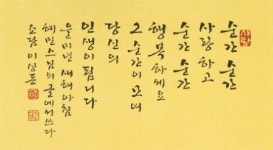 순간 순간
사랑하고
순간 순간
행복하세요
그 순간이 모여
당신의
인생이 됩니다
을미년 새해아침
혜민스님의 글에서쓰다
소담